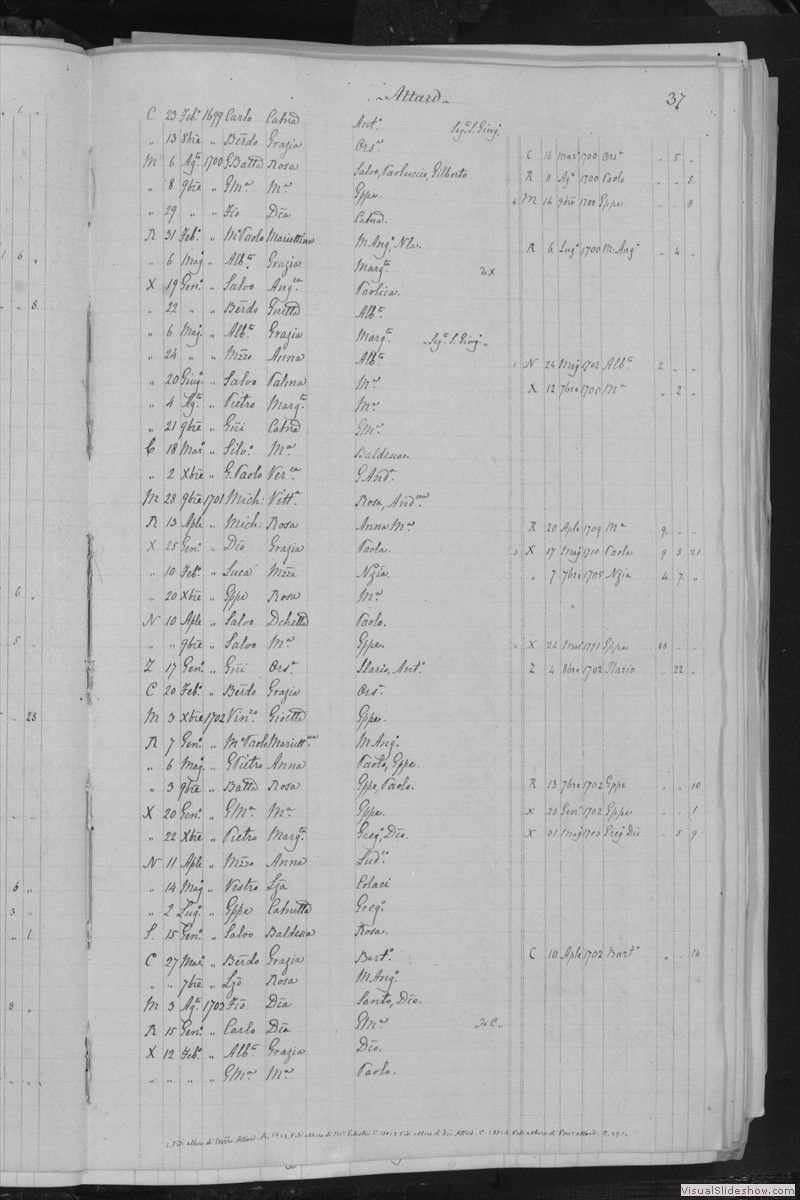 Attard 37
C 23 Feb.o 1699 Carlo Catnã Ant.o Seg. S. Giorg.o
„ 13 8bre „ Berdo Grazia Ors.a
M 6 Ag.to 1700 G.Batta Rosa Salvo, Paoluccio, Gilberto C 16 Mar.o 1700 Ors.a „ 5 „
„ 8 9bre „ GM.a M.a Gppe. R 11 Ag.o 1700 Paolo „ „ 8
„ 29 „ „ Fio Dia Catnã. 4 M 14 9bre 1700 Gppe „ „ 8
R 31 Feb.o „ M.o Paolo Mariettina M.Ang.o, Nla.
„ 6 Mag. „ Alb.to Grazia Marg.ta de X R 6 Lug.o 1700 M.Ang.o „ 4 „
X 19 Gen.o „ Salvo Ang.ca Paolica.
„ 22 „ „ Berdo Gnetta Alb.to
„ 6 Mag. „ Alb.to Grazia Marg.ta „Seg. S. Giorg.o„
„ 24 „ „ Mzzo Anna Alb.to 1 N 24 Mag 1702 Alb.to 2 „ „
„ 20 Giug.o „ Salvo Palma M.a X 12 7bre 1700 M.a „ 2 „
„ 4 Ag.to „ Pietro Marg.ta M.a
„ 21 9bre „ Gni Catnã GM.a
C 18 Mar.o „ Silv.o M.a Baldessa.
„ 2 Xbre „ G.Paolo Ver.ca G.And.a
M 28 9bre 1701 Mich: Vitt.a Rosa, And.na
R 13 Aple „ Mich: Rosa Anna M.a R 20 Aple 1709 M.a 9 „ „
X 25 Gen.o „ Dio Grazia Paola. 3 X 17 Mag 1710 Paola 9 3 21
„ 10 Feb.o „ Luca Mzza Nzia. „ 7 7bre 1705 Nzia 4 7 „
„ 20 Xbre „ Gppe Rosa M.a
N 10 Aple „ Salvo Dchetta Paolo.
„ „ 9bre „ Salvo M.a Gppe. X 24 1771 Gppe 80 „ „
Z 17 Gen.o „ Gni Ors.a Ilario, Ant.o Z 4 8bre 1702 Ilario „ 22 „
C 20 Feb.o „ Berdo Grazia Ors.a
M 3 Xbre 1702 Vin.zo Gioetta Gppe.
R 7 Gen.o „ M.o Paolo Mariett.na M.Ang.o
„ 6 Mag. „ G.Pietro Anna Paolo, Gppe.
„ 3 9bre „ Batta Rosa Gppe, Paolo. R 13 7bre 1702 Gppe „ „ 10
X 20 Gen.o „ GM.a M.a Gppe. X 20 Gen.o 1702 Gppe „ „ 1
„ 22 Xbre „ Pietro Marg.ta Greg.o, Dio. X 31 Mag 1703 Greg.o Dio „ 5 9
N 11 Aple „ Mzzo Anna Lud.co
„ 14 Mag „ Vestro Lza Colaci
„ 2 Lug.o „ Gppe Catnetta Greg.o
S. 15 Gen.o „ Salvo Baldessa Rosa.
C 27 Mar.o „ Berdo Grazia Bart.o C 10 Aple 1702 Bart.o „ „ 14
„ „ 7bre „ Lzo Rosa M.Ang.o
M 3 Ag.to 1703 Fio Dia Santo, Dio.
R 15 Gen.o „ Carlo Dia GM.a „de C„
X 12 Feb.o „ Alb.to Grazia Dio.
„ „ „ „ GM.a M.a Paolo.
VisualSlideshow.com